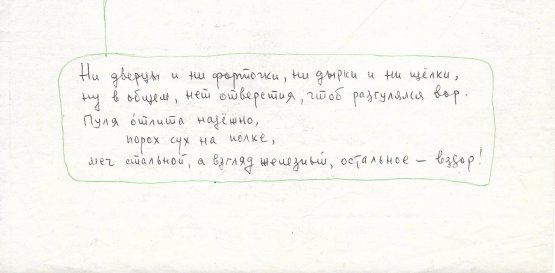 Ни дверцы и ни форточки, ни дырки и ни щёлки,
ну в общем, нет отверстия, чтоб разгулялся вор.
Пуля отлита надёжно,
порох сух на полке,
меч стальной, а взгляд железный, остальное – вздор!